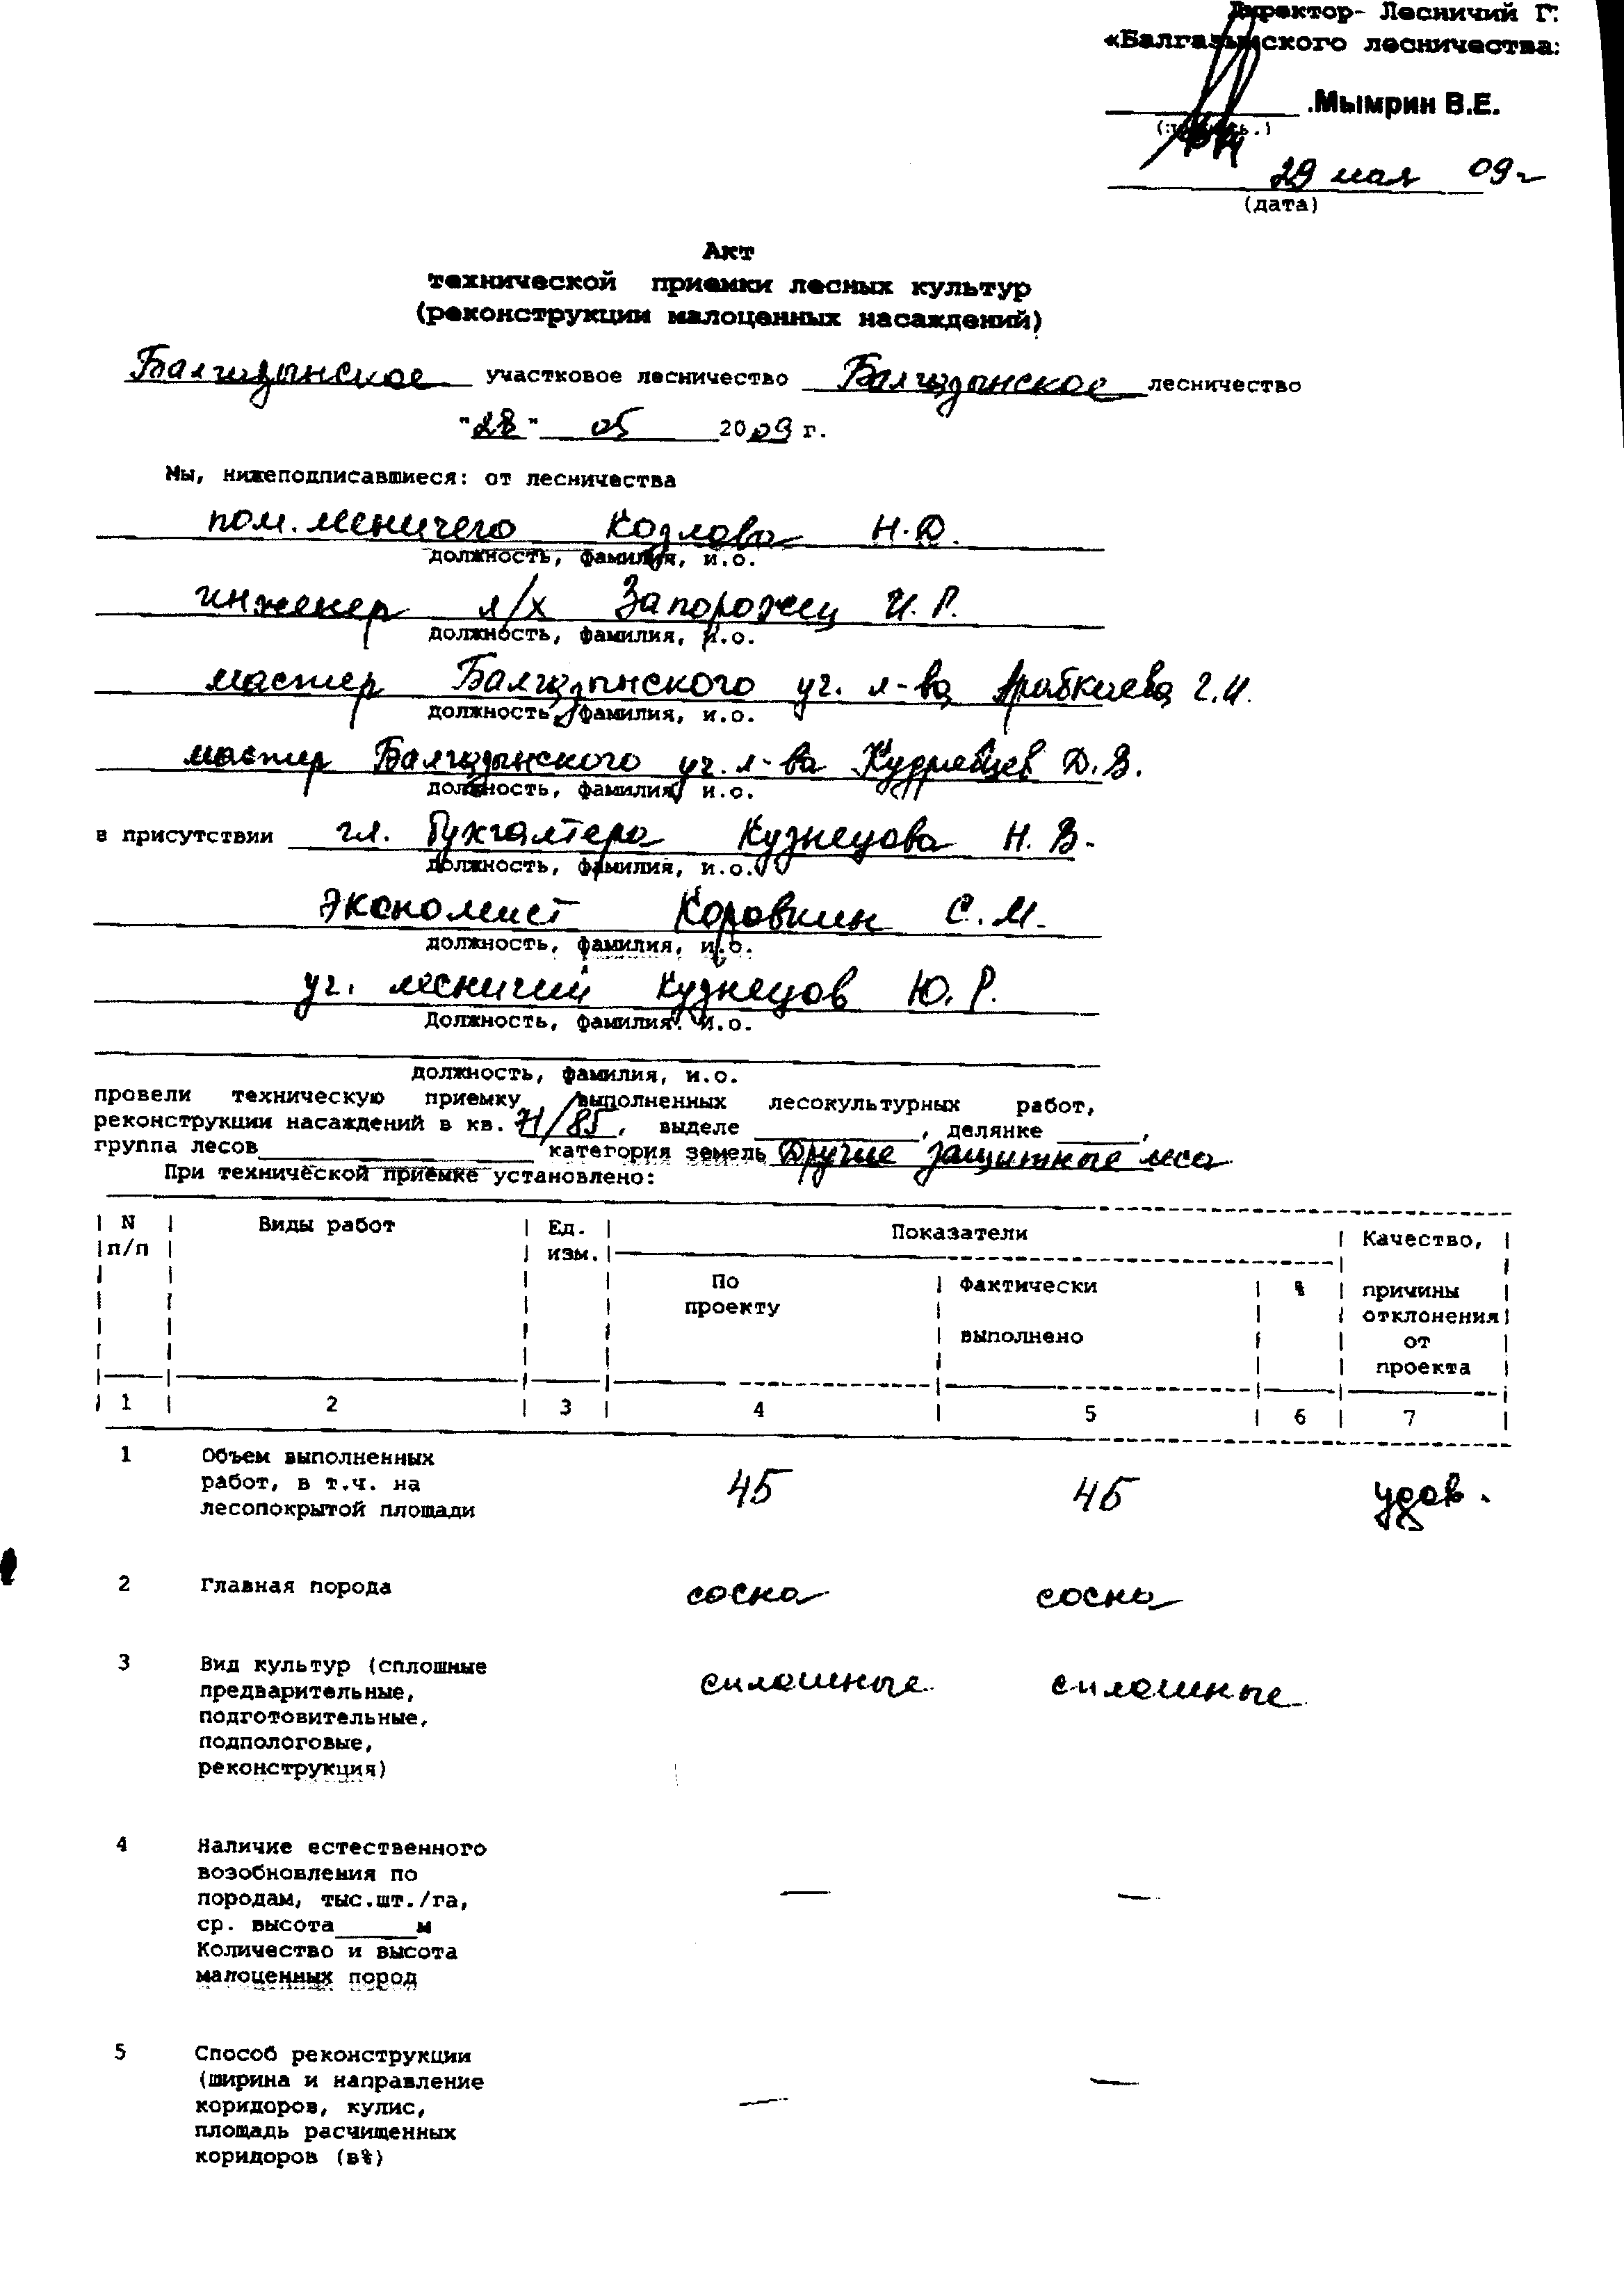 Директор- Лесничий Г
«Балгазынского лесничества
.Мымрин В.Е.
29 мая 09г
(дата)
Акт
технической приемки лесных культур
(реконструкции малоценных насаждений)
Балгазынское участковое лесничество Балгазынское лесничество
"28" 05 2009 г.
Мы, нижеподписавшиеся: от лесничества
пом. лесничего Козлова Н.Ю.
должность, фамилия, и.о.
инженер л/х Запорожец И.Р.
должность, фамилия, и.о.
мастер Балгазынского уч. л-ва Г.И.
должность, фамилия, и.о.
мастер Балгазынского уч. л-ва Кудрявцев Д.В.
должность, фамилия, и.о.
в присутствии гл. бухгалтера Кузнецова Н.В.
должность, фамилия, и.о.
экономист Коровкин С.М.
должность, фамилия, и.о.
уч. лесничий Кузнецов Ю.Р.
Должность, фамилия. и.о.
должность, фамилия, и.о.
провели техническую приемку выполненных лесокультурных работ,
реконструкции насаждений в кв. 71/85, выделе ________, делянке ____,
группа лесов________ категория земель Другие защитные леса
При технической приемке установлено:
N Виды работ Ед. Показатели Качество,
п/п изм.
По Фактически % причины
проекту отклонения
выполнено от
проекта
1 2 3 4 5 6 7
1 Объем выполненных
работ, в т.ч. на 45 45 удов.
лесопокрытой площади
2 Главная порода сосна сосна
3 Вид культур (сплошные сплошные сплошные
предварительные,
подготовительные,
подпологовые,
реконструкция)
4 Наличие естественного
возобновления по
породам, тыс.шт./га, — —
ср. высота_____м
Количество и высота
малоценных пород
5 Способ реконструкции
(ширина и направление —
коридоров, кулис, —
площадь расчищенных
коридоров (в%)